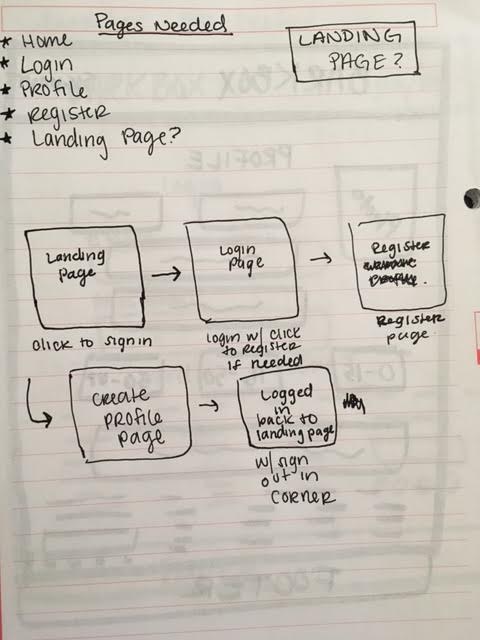 Pages Needed
★ Home
★ Login
★ Profile
★ Register
★ Landing Page?
LANDING
PAGE?
Landing
Page
click to sign in
Login
Page
Login w/ click
to Register
if needed
Register
PROFILE.
Register
page
Create
Profile
Page
Logged
in
back to
landing page
w/ sign
out in
corner
DARKBOX
PROFILE
FOOTER